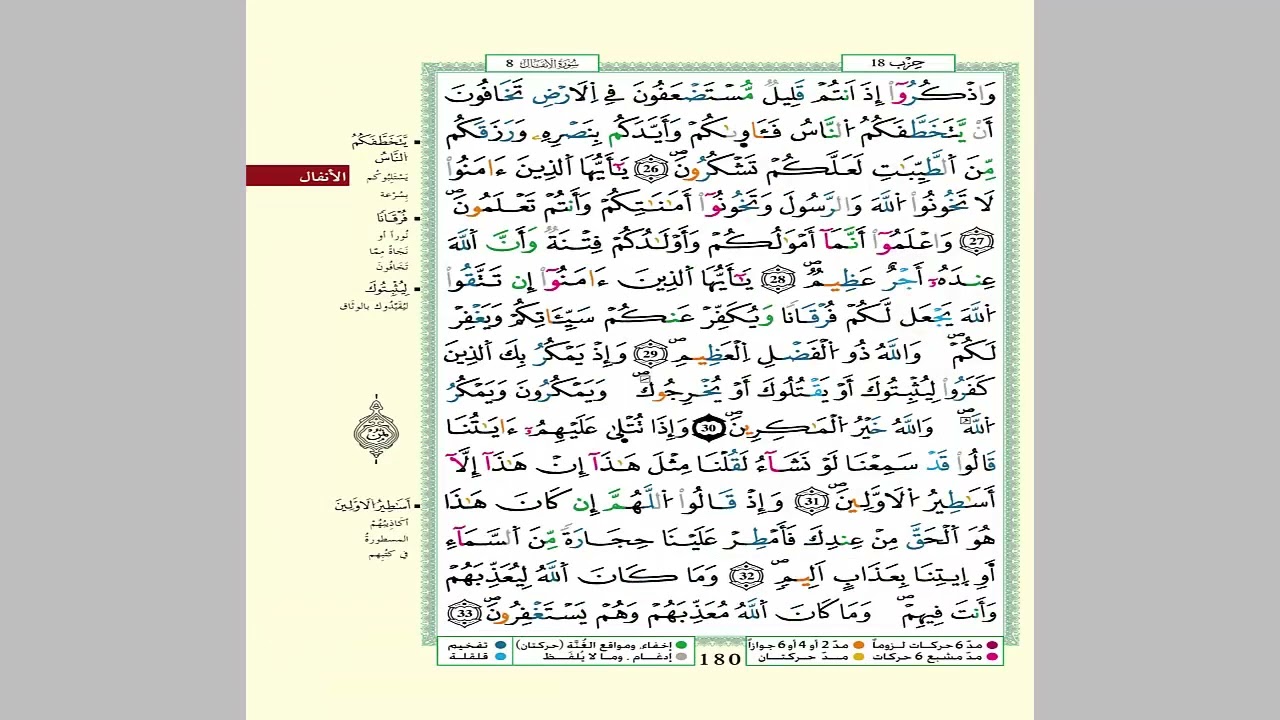 حِزْب 18
سُورَةُ الْأَنفَالِ 8
وَاذْكُرُوٓا۟ إِذَ اَنتُمْ قَلِيلٌ مُّسْتَضْعَفُونَ فِے اِ۬لَارْضِ تَخَافُونَ
أَنْ يَّتَخَطَّفَكُمُ اُ۬لنَّاسُ فَـَٔاو۪يٰكُمْ وَأَيَّدَكُم بِنَصْرِهِۦ وَرَزَقَكُم
مِّنَ اَ۬لطَّيِّبَٰتِ لَعَلَّكُمْ تَشْكُرُونَۖ 26 يَٰٓأَيُّهَا اَ۬لذِينَ ءَامَنُوا۟
لَا تَخُونُوا۟ اُ۬للَّهَ وَالرَّسُولَ وَتَخُونُوٓا۟ أَمَٰنَٰتِكُمْ وَأَنتُمْ تَعْلَمُونَۖ
27 وَاعْلَمُوٓا۟ أَنَّمَآ أَمْوَٰلُكُمْ وَأَوْلَٰدُكُمْ فِتْنَةٌ وَأَنَّ اَ۬للَّهَ
عِندَهُۥٓ أَجْرٌ عَظِيمٌۖ 28 يَٰٓأَيُّهَا اَ۬لذِينَ ءَامَنُوٓا۟ إِن تَتَّقُوا۟
اُ۬للَّهَ يَجْعَل لَّكُمْ فُرْقَانًا وَيُكَفِّرْ عَنكُمْ سَيِّـَٔاتِكُمْ وَيَغْفِرْ
لَكُمْۖ وَاللَّهُ ذُو اُ۬لْفَضْلِ اِ۬لْعَظِيمِۖ 29 وَإِذْ يَمْكُرُ بِكَ اَ۬لذِينَ
كَفَرُوا۟ لِيُثْبِتُوكَ أَوْ يَقْتُلُوكَ أَوْ يُخْرِجُوكَۖ وَيَمْكُرُونَ وَيَمْكُرُ
اُ۬للَّهُۖ وَاللَّهُ خَيْرُ اُ۬لْمَٰكِرِينَۖ 30 وَإِذَا تُتْل۪يٰ عَلَيْهِمُۥٓ ءَايَٰتُنَا
قَالُوا۟ قَدْ سَمِعْنَا لَوْ نَشَآءُ لَقُلْنَا مِثْلَ هَٰذَآ إِنْ هَٰذَآ إِلَّآ
أَسَٰطِيرُ اُ۬لَاوَّلِينَۖ 31 وَإِذْ قَالُوا۟ اُ۬للَّهُمَّ إِن كَانَ هَٰذَا
هُوَ اَ۬لْحَقَّ مِنْ عِندِكَ فَأَمْطِرْ عَلَيْنَا حِجَارَةً مِّنَ اَ۬لسَّمَآءِ
اَوِ اِيتِنَا بِعَذَابٍ اَلِيمٍۖ 32 وَمَا كَانَ اَ۬للَّهُ لِيُعَذِّبَهُمْ
وَأَنتَ فِيهِمْۖ وَمَا كَانَ اَ۬للَّهُ مُعَذِّبَهُمْ وَهُمْ يَسْتَغْفِرُونَۖ 33
يَّتَخَطَّفَكُمُ
اُ۬لنَّاسُ
يَسْتَلِبُوكُم
بِسُرْعة
الأنفال
فُرْقَانًا
نُوراً أو
نَجَاةً مِمَّا
تَخَافُونَ
لِيُثْبِتُوكَ
لِيُقَيِّدُوك بالوثاق
ثمن
أَسَٰطِيرُ اُ۬لَاوَّلِينَ
أكاذيبُهُمْ
المسطورةُ
في كتُبِهم
مدّ 6 حركات لـزومـاً
مدّ 2 أو 4 أو 6 جوازاً
إخفاء، ومواقع الغُنَّة (حركتان)
تفخيم
مدّ مشبع 6 حركات
مـدّ حـركتـان
إدغـام ، ومـا لا يُلفـظ
قلقلة
180